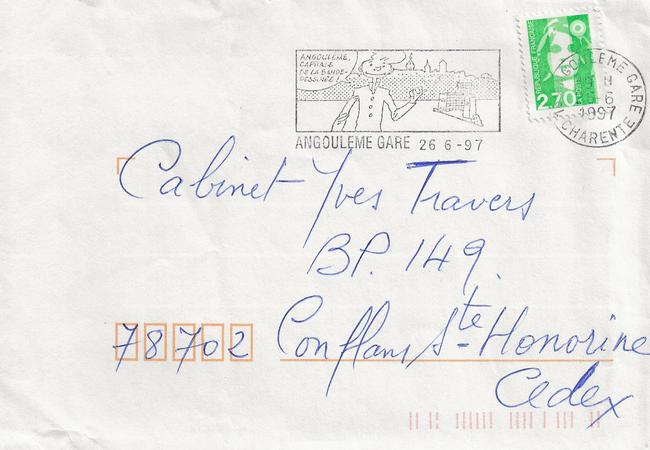 ANGOULEME,
CAPITALE
DE LA BANDE-
DESSINÉE !
ANGOULEME GARE 26 6 -97
REPUBLIQUE FRANÇAISE
2,70
ANGOULEME GARE
H
6
1997
CHARENTE
Cabinet Yves Travers
BP. 149
78702 Conflans Ste-Honorine
Cedex